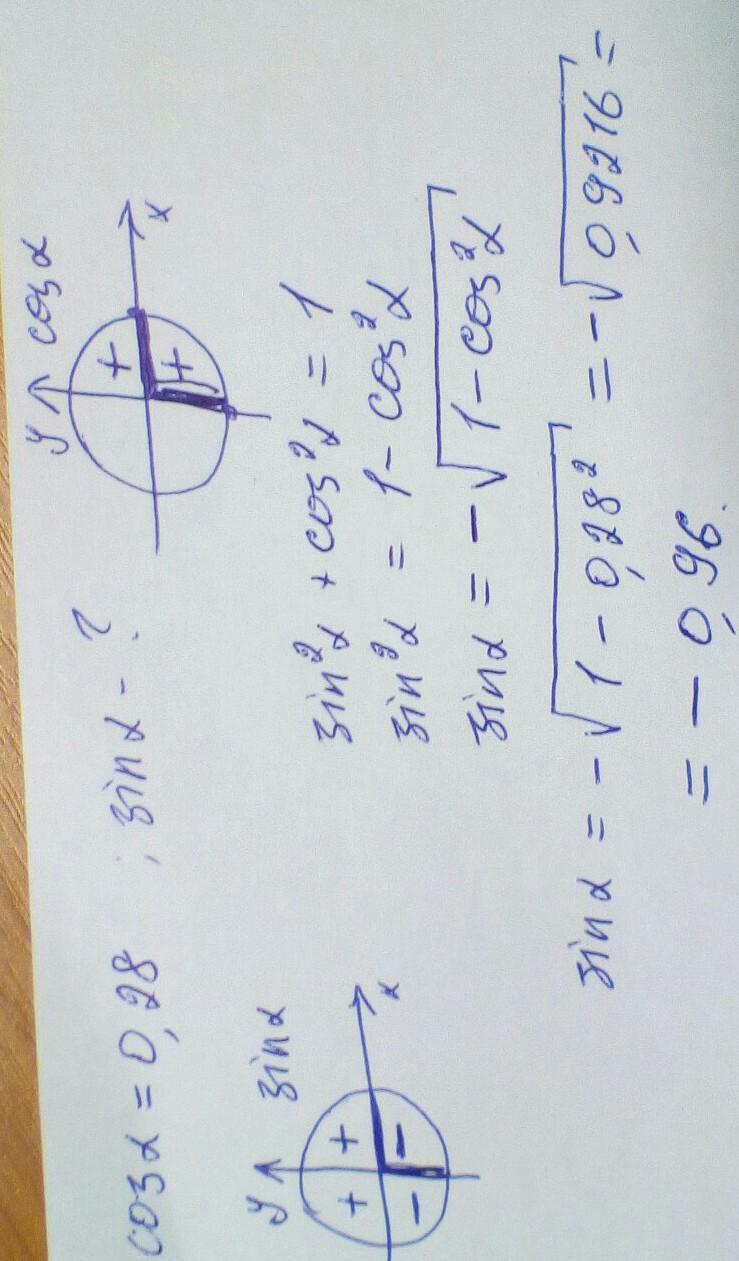 cosα = 0,28 ; sinα - ?
y cosα
+
+
x
y sinα
+ +
- -
x
sin²α + cos²α = 1
sin²α = 1 - cos²α
sinα = -√1 - cos²α
sinα = -√1 - 0,28² = -√0,9216 =
= - 0,96.